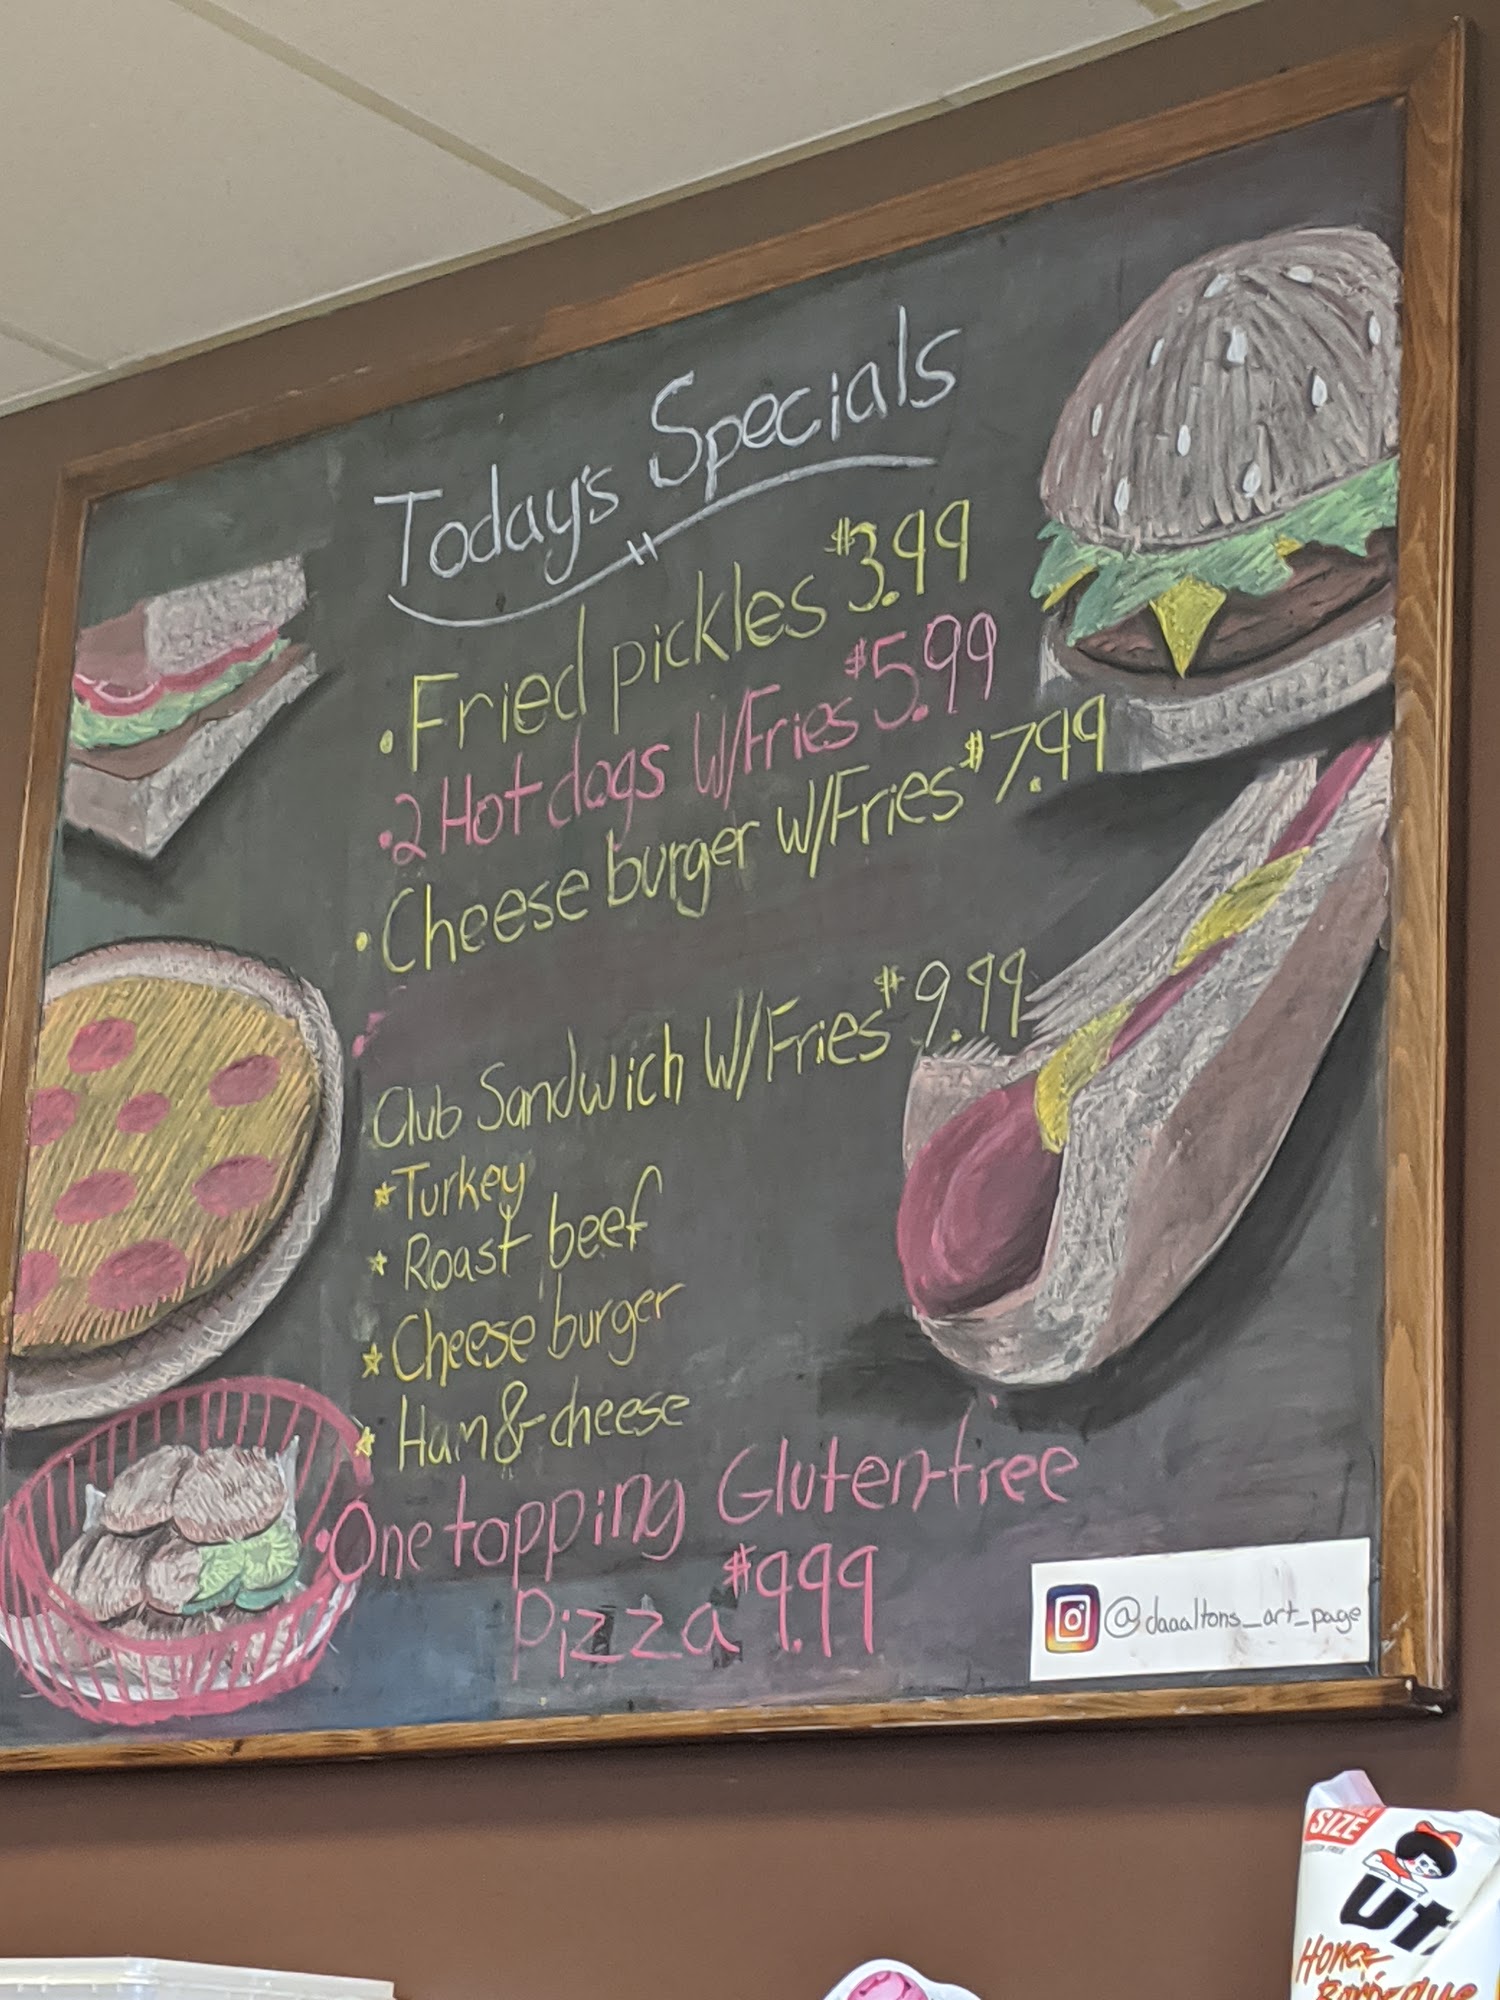 Today's Specials
• Fried pickles $3.99
• 2 Hot dogs W/Fries $5.99
• Cheese burger W/Fries $7.99
Club Sandwich W/Fries $9.99
☆ Turkey
☆ Roast beef
☆ Cheese burger
☆ Ham & cheese
• One topping Gluten-free
Pizza $9.99
@daaaltons_art_page
SIZE
Honey